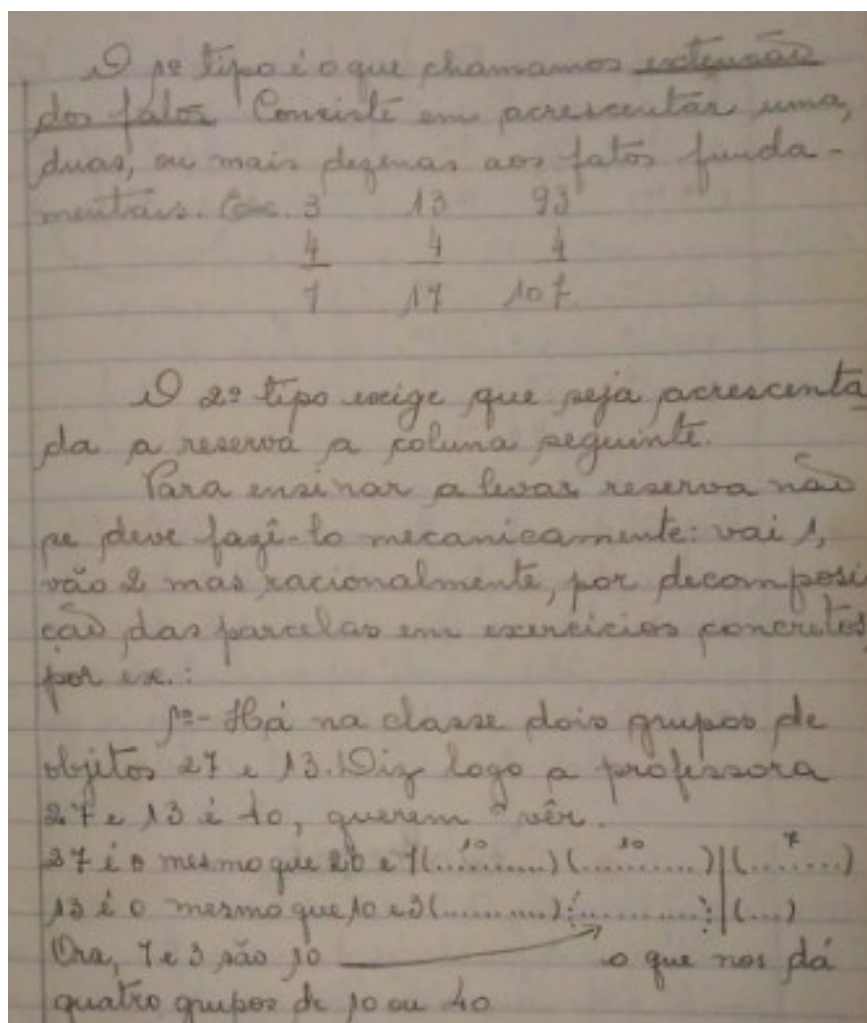 O 1º tipo é o que chamamos extensão
dos fatos Consiste em acrescentar uma,
duas, ou mais dezenas aos fatos funda-
mentais. Ex. 3 13 93
4 4 4
7 17 107
O 2º tipo exige que seja acrescenta
da a reserva a coluna seguinte.
Para ensinar a levar reserva não
se deve fazê-lo mecanicamente: vai 1,
vão 2 mas racionalmente, por decomposi
ção das parcelas em exercícios concretos,
por ex.:
1º- Há na classe dois grupos de
objetos 27 e 13. Diz logo a professora
27 e 13 é 40, querem vêr.
10 10 7
27 é o mesmo que 20 e 7(..........) (..........) (.......)
13 é o mesmo que 10 e 3(..........) (..........) (...)
Ora, 7 e 3 são 10 o que nos dá
quatro grupos de 10 ou 40